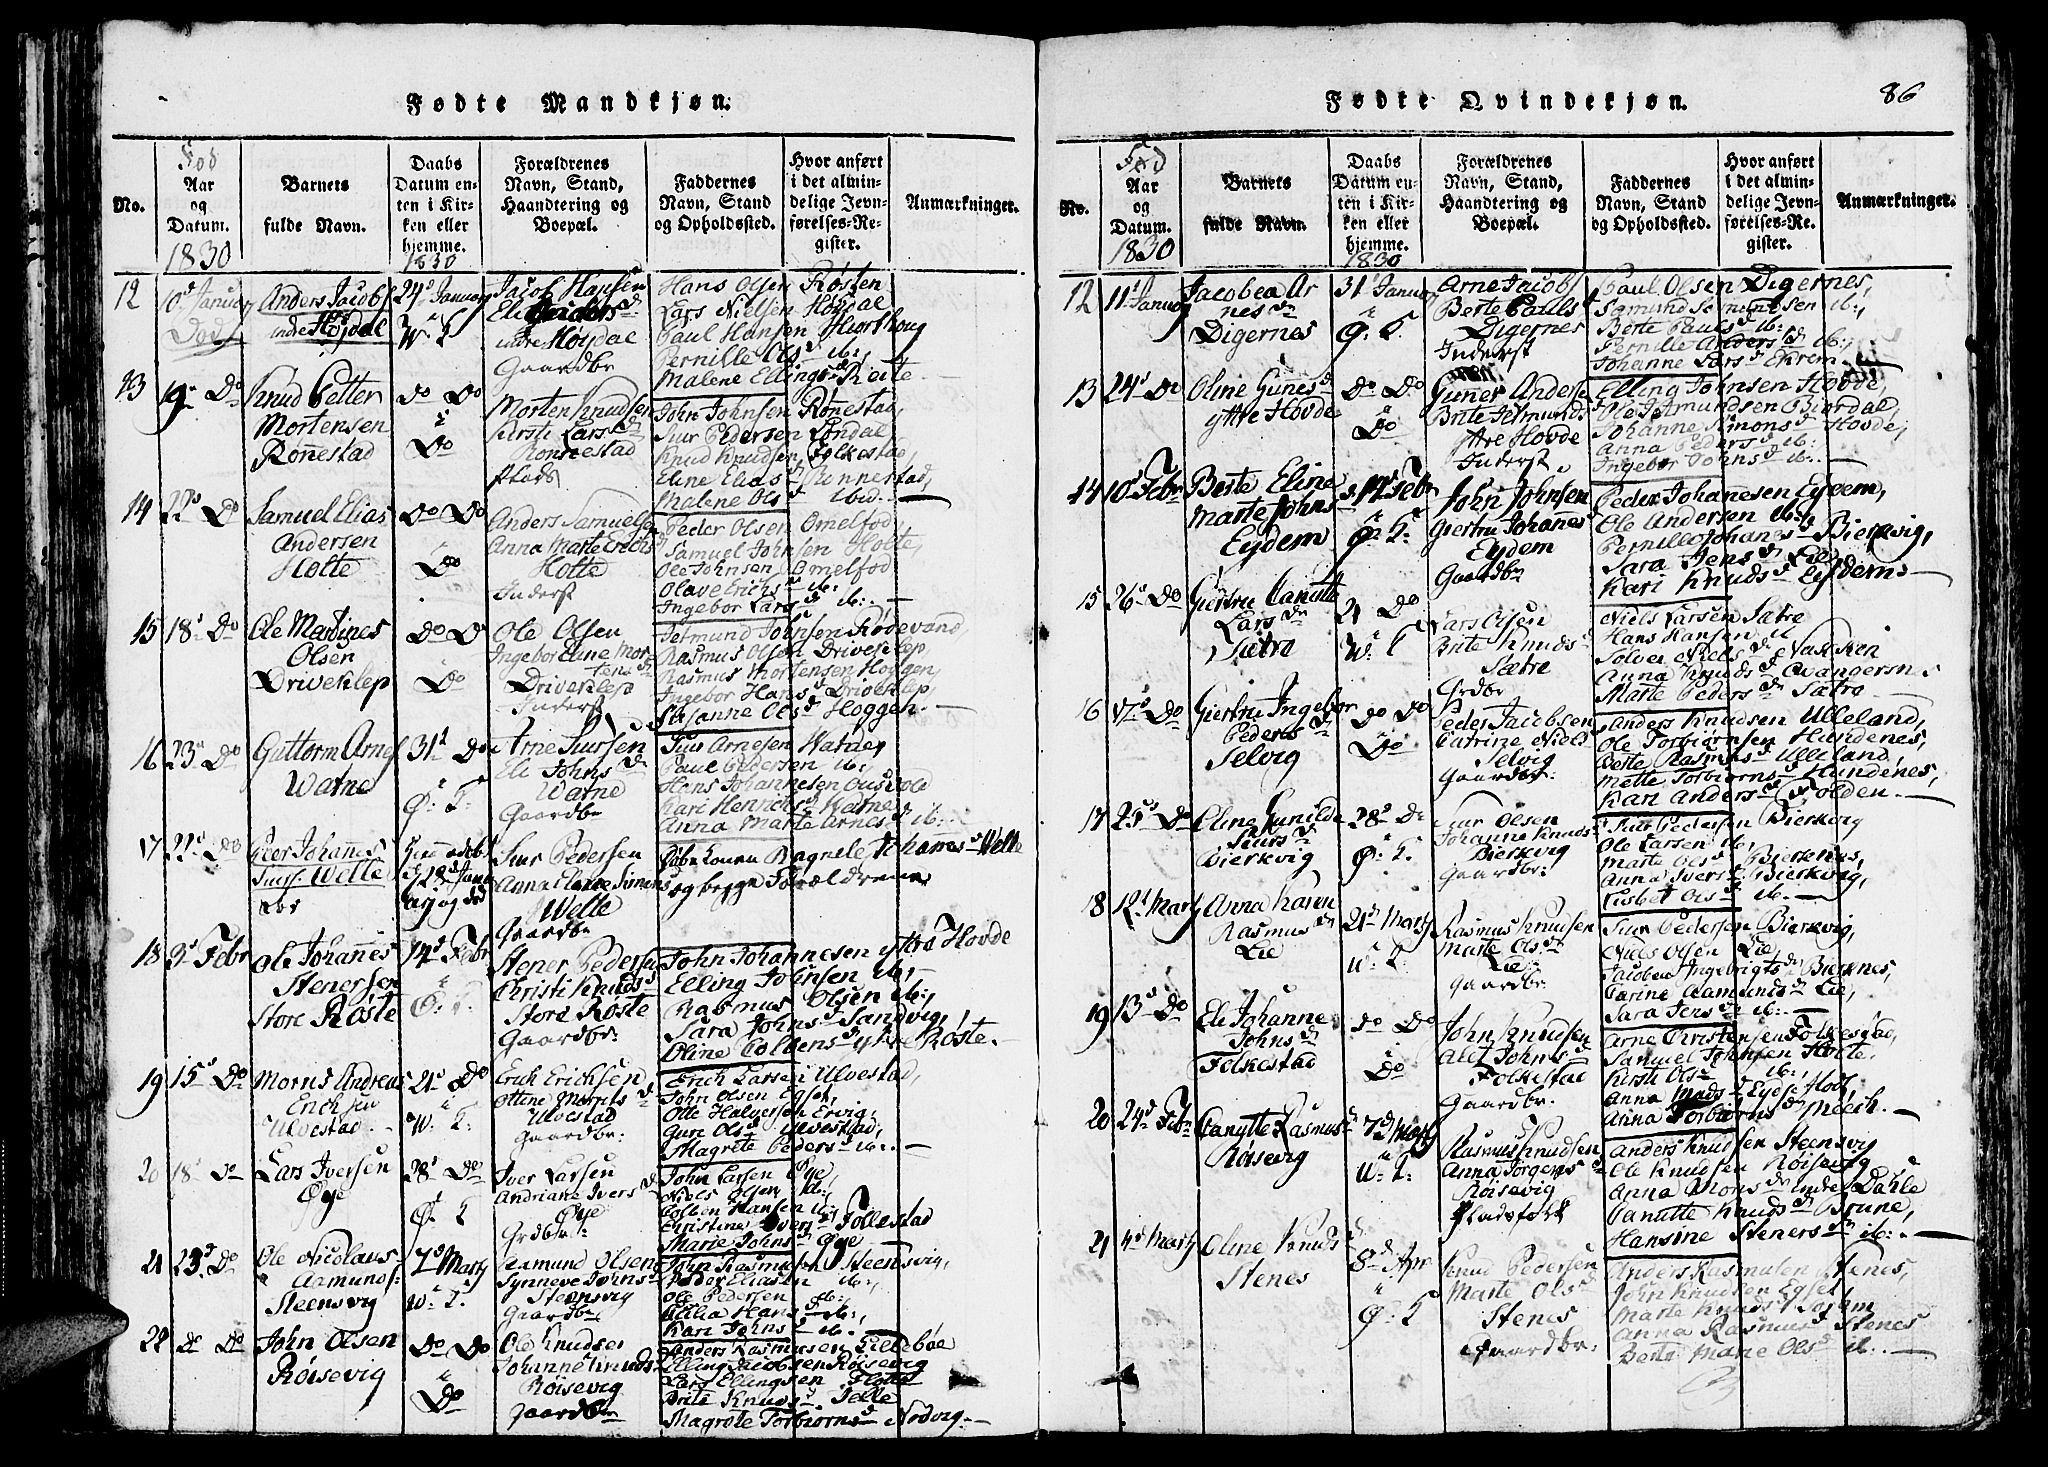 Fødte Mandkjøn.
No.
Fød
Aar
og
Datum.
1830
Barnets
fulde Navn.
Daabs
Datum en-
ten i Kir-
ken eller
hjemme.
1830
Forældrenes
Navn, Stand,
Haandtering og
Boepæl.
Faddernes
Navn, Stand
og Opholdssted.
Hvor anført
i det almin-
delige Jevn-
førelses-Re-
gister.
Anmærkninger.
12
10d Januar
Anders Jacobs
indre Høydal
24d Januar
W. K
Jacob Hansen
indre Høydal
Gaardbr
Hans Olsen Røsten
Lars Nielsen Høydal
Paul Hansen Hiorthoug
Pernille Olsd ib:,
Malene Ellingsd Reite
13
19 Do
Knud Petter
Mortensen
Rønestad
Do Do
i
Do
Morten Knudsen
Kirsti Larsd
Ronnestad
Plads
John Johnsen Rønestad,
Siur Pedersen Løndal
Knud Knudsen Folkestad,
Eline Eliasd Rønnestad,
Malene Olsd ibid.
14
22d Do
Samuel Elias
Andersen
Holte
Do Do
i
Do
Anders Samuelsen
Anna Marte Erichsd
Holte
Inderst
Peder Olsen Omelfod,
Samuel Johnsen Holte,
Ole Johnsen Omelfod
Olave Erichsd ib:
Ingebor Larsd ib:
15
18d Do
Ole Martines
Olsen
Driveklep
Do D
i
Do
Ole Olsen
Ingebor Eline Mor
tensd
Driveklep
Inderst
Jetmund Johnsen Rødevand,
Rasmus Olsen Driveklep,
Rasmus Mortensen Hoggen,
Ingebor Hansd Driveklep,
Susanne Olsd Hoggen.
16
23d Do
Guttorm Arnes
Watne
31d Do
i
Ø. K.
Arne Siursen
Eli Johnsd
Watne
Gaardbr
Siur Arnesen Watne,
Paul Pedersen ib:
Hans Johannesen
Kari Henrichsd Watne
Anna Marte Arnesd ib:
17
22d Do
Peer Johanes
Siurs. Welle
Siur Pedersen
Anna Simonsd
Welle
Gaardbr
Ragnele Johannesd Welle
og begge Forældrene
18
3d Febr
Ole Johanes
Stenersen
Store Røste
14d Febr
i
Ø. K.
Stener Pedersen
Christi Knudsd
Store Røste
Gaardbr
John Johannesen ytre Hovde
Elling Johnsen ib:
Rasmus Olsen ib:,
Sara Johnsd Sandvig,
Oline Coldensd ytre Røste.
19
15d Do
Morris Andreas
Erichsen
Ulvestad
21d Do
i
W. K.
Erich Erichsen
Ottine Morritsd
Ulvestad
Gaardbr:
Erich Larsen Ulvestad,
John Olsen Egset,
Olle Halversen Ervig,
Guri Olsd Ulvestad,
Magrete Pedersd ib:
20
18d Do
Lars Iversen
Øye
28d Do
i
Ø. K
Iver Larsen
Andriane Iversd
Øye
Grdbr
John Larsen Øye,
Niels Olsen ib:,
Colben Hansen ib:
Christine Iversd Follestad
Marie Johnsd Øye
21
23d Do
Ole Nicolaus
Aamunds
Steensvig
7d Marty
i
W. K.
Aamund Olsen
Synneve Johnsd
Steensvig
Gaardbr
John Rasmusen Steensvig,
Peder Eliasen ib:,
Ole Pedersen
Cilia Hansd ib:
Kari Johnsd ib:
22
Do Do
John Olsen
Røisevig
Do Do
i
Do
Ole Knudsen
Johanne Knudsd
Røisevig
Gaardbr
Anders Rasmusen Lillebøe
Elling Jacobsen Røisevig
Lars Ellingsen Flotte
Brite Knudsd Velle
Magrete Torbiørnsd Nedvig
Fødte Qvindekjøn.
86
No.
Fød
Aar
og
Datum.
1830
Barnets
fulde Navn.
Daabs
Datum en-
ten i Kir-
ken eller
hjemme.
1830
Forældrenes
Navn, Stand,
Haandtering og
Boepæl.
Faddernes
Navn, Stand
og Opholdssted.
Hvor anført
i det almin-
delige Jevn-
førelses-Re-
gister.
Anmærkninger.
12
11d Januar
Jacobea Ar
nesd
Digernes
31d Januar
i
Ø. K.
Arne Jacobs
Berte Paulsd
Digernes
Inderst
Paul Olsen Digernes,
Samund Samundsen ib:,
Berte Paulsd ib:
Pernille Andersd ib:
Johanne Larsd Ekrem
13
24d Do
Oline Gunesd
ytre Hovde
Do Do
i
Do
Guner Anderse
Brite Jetmunds
ytre Hovde
Inderst
Elling Johnsen Hovde,
Ole Jetmundsen Biørdal,
Johanne Simonsd Hovde,
Anna Pedersd ib:
Ingebor Johnsd ib:
14
10d Febr
Berte Eline
Marte Johnsd
Eydem
14d Febr
i
Ø. K.
John Johnsen
Giertru Johanesd
Eydem
Gaardbr
Peder Johannesen Eydem,
Ole Andersen ib:
Pernille Johansd Bierkvig,
Sara Jensd Lie
Kari Knudsd Eydem
15
26d Do
Giertru Canutte
Larsdr
Sætre
21 Do
W. K
Lars Olsen
Brite Knudsd
Sætre
Grdbr
Niels Larsen Sætre
Hans Hansen ib
Solvei Nielsd Nakken
Anna Knudsd Ovangersnes
Marte Pedersd Sætre
16
17d Do
Giertru Ingebor
Pedersd
Selvig
Do Do
i
Do
Peder Jacobsen
Catrine Nielsd
Selvig
Gaardbr:
Anders Knudsen Ulleland,
Ole Torbiørnsen Hundenes,
Berte Rasmusd Ulleland,
Mette Torbiørnsd Hundenes,
Kari Andersd Folden.
17
25d Do
Eline Gunilde
Siursd
Bierkvig
28d Do
i
Ø. K.
Siur Olsen
Johanne Knudsd
Bierkvig
Gaardbr:
Siur Pedersen Bierkvig
Ole Larsen ib,
Marte Olsd Bierknes,
Anna Iversd Bierkvig,
Lisbet Olsd ib.
18
12d Marty
Anna Karen
Rasmusdr
Lie
21d Marty
i
W. K.
Rasmus Knudsen
Marte Olsd
Lie
Gaardbr.
Siur Pedersen Bierkvig,
Niels Olsen Lie,
Jacobea Ingebrigtsd Bierknes,
Carine Aamundsd Lie,
Sara Jensd ib:
19
13d Do
Eli Johanne
Johnsd
Folkestad
Do Do
i
Do
John Knudsen
Alet Johnsd
Folkestad
Gaardbr.
Arne Christensen Folkestad,
Samuel Johnsen Holte.
Kirsti Olsd ib:,
Anna Madsd Eydsethod,
Anna Torbiørnsd Mück.
20
24d Febr
Canutte Rasmusd
Røisevig
7d Marty
i
W. K.
Rasmus Knudsen
Anna Jørgensd
Røisevig
Pladsfolk
Anders Knudsen Steensvig
Ole Knudsen Røisevig
Anna Monsd indre Dahle
Canutte Knudsd Brune,
Hansine Stenersd ib:
21
4d Marty
Oline Knudsd
Stenes
8d Apr
i
Ø. K
Knud Pedersen
Marte Olsd
Stenes
Gaardbr:
Anders Rasmusen Stenes,
John Knudsen Egset,
Marte Knudsd
Anna Rasmusd Stenes
Berte Marie Olsd ib.